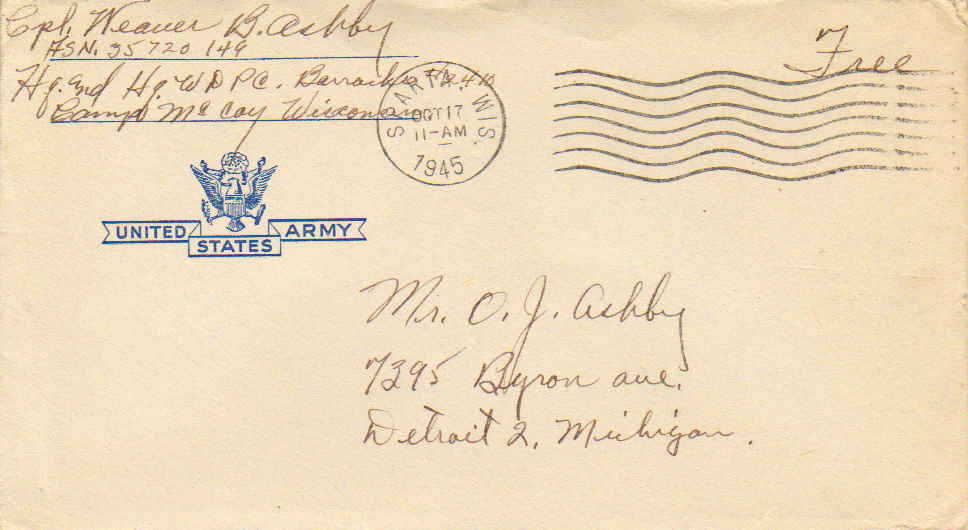 Cpl. Weaver B. Ashby
ASN. 35720149
Hq. and Hq. W D P C. Barracks
Camp McCoy Wisconsin
SPARTA, WIS.
OCT 17
11-AM
1945
Free
UNITED STATES ARMY
Mr. O. J. Ashby
7395 Byron ave.
Detroit 2, Michigan.